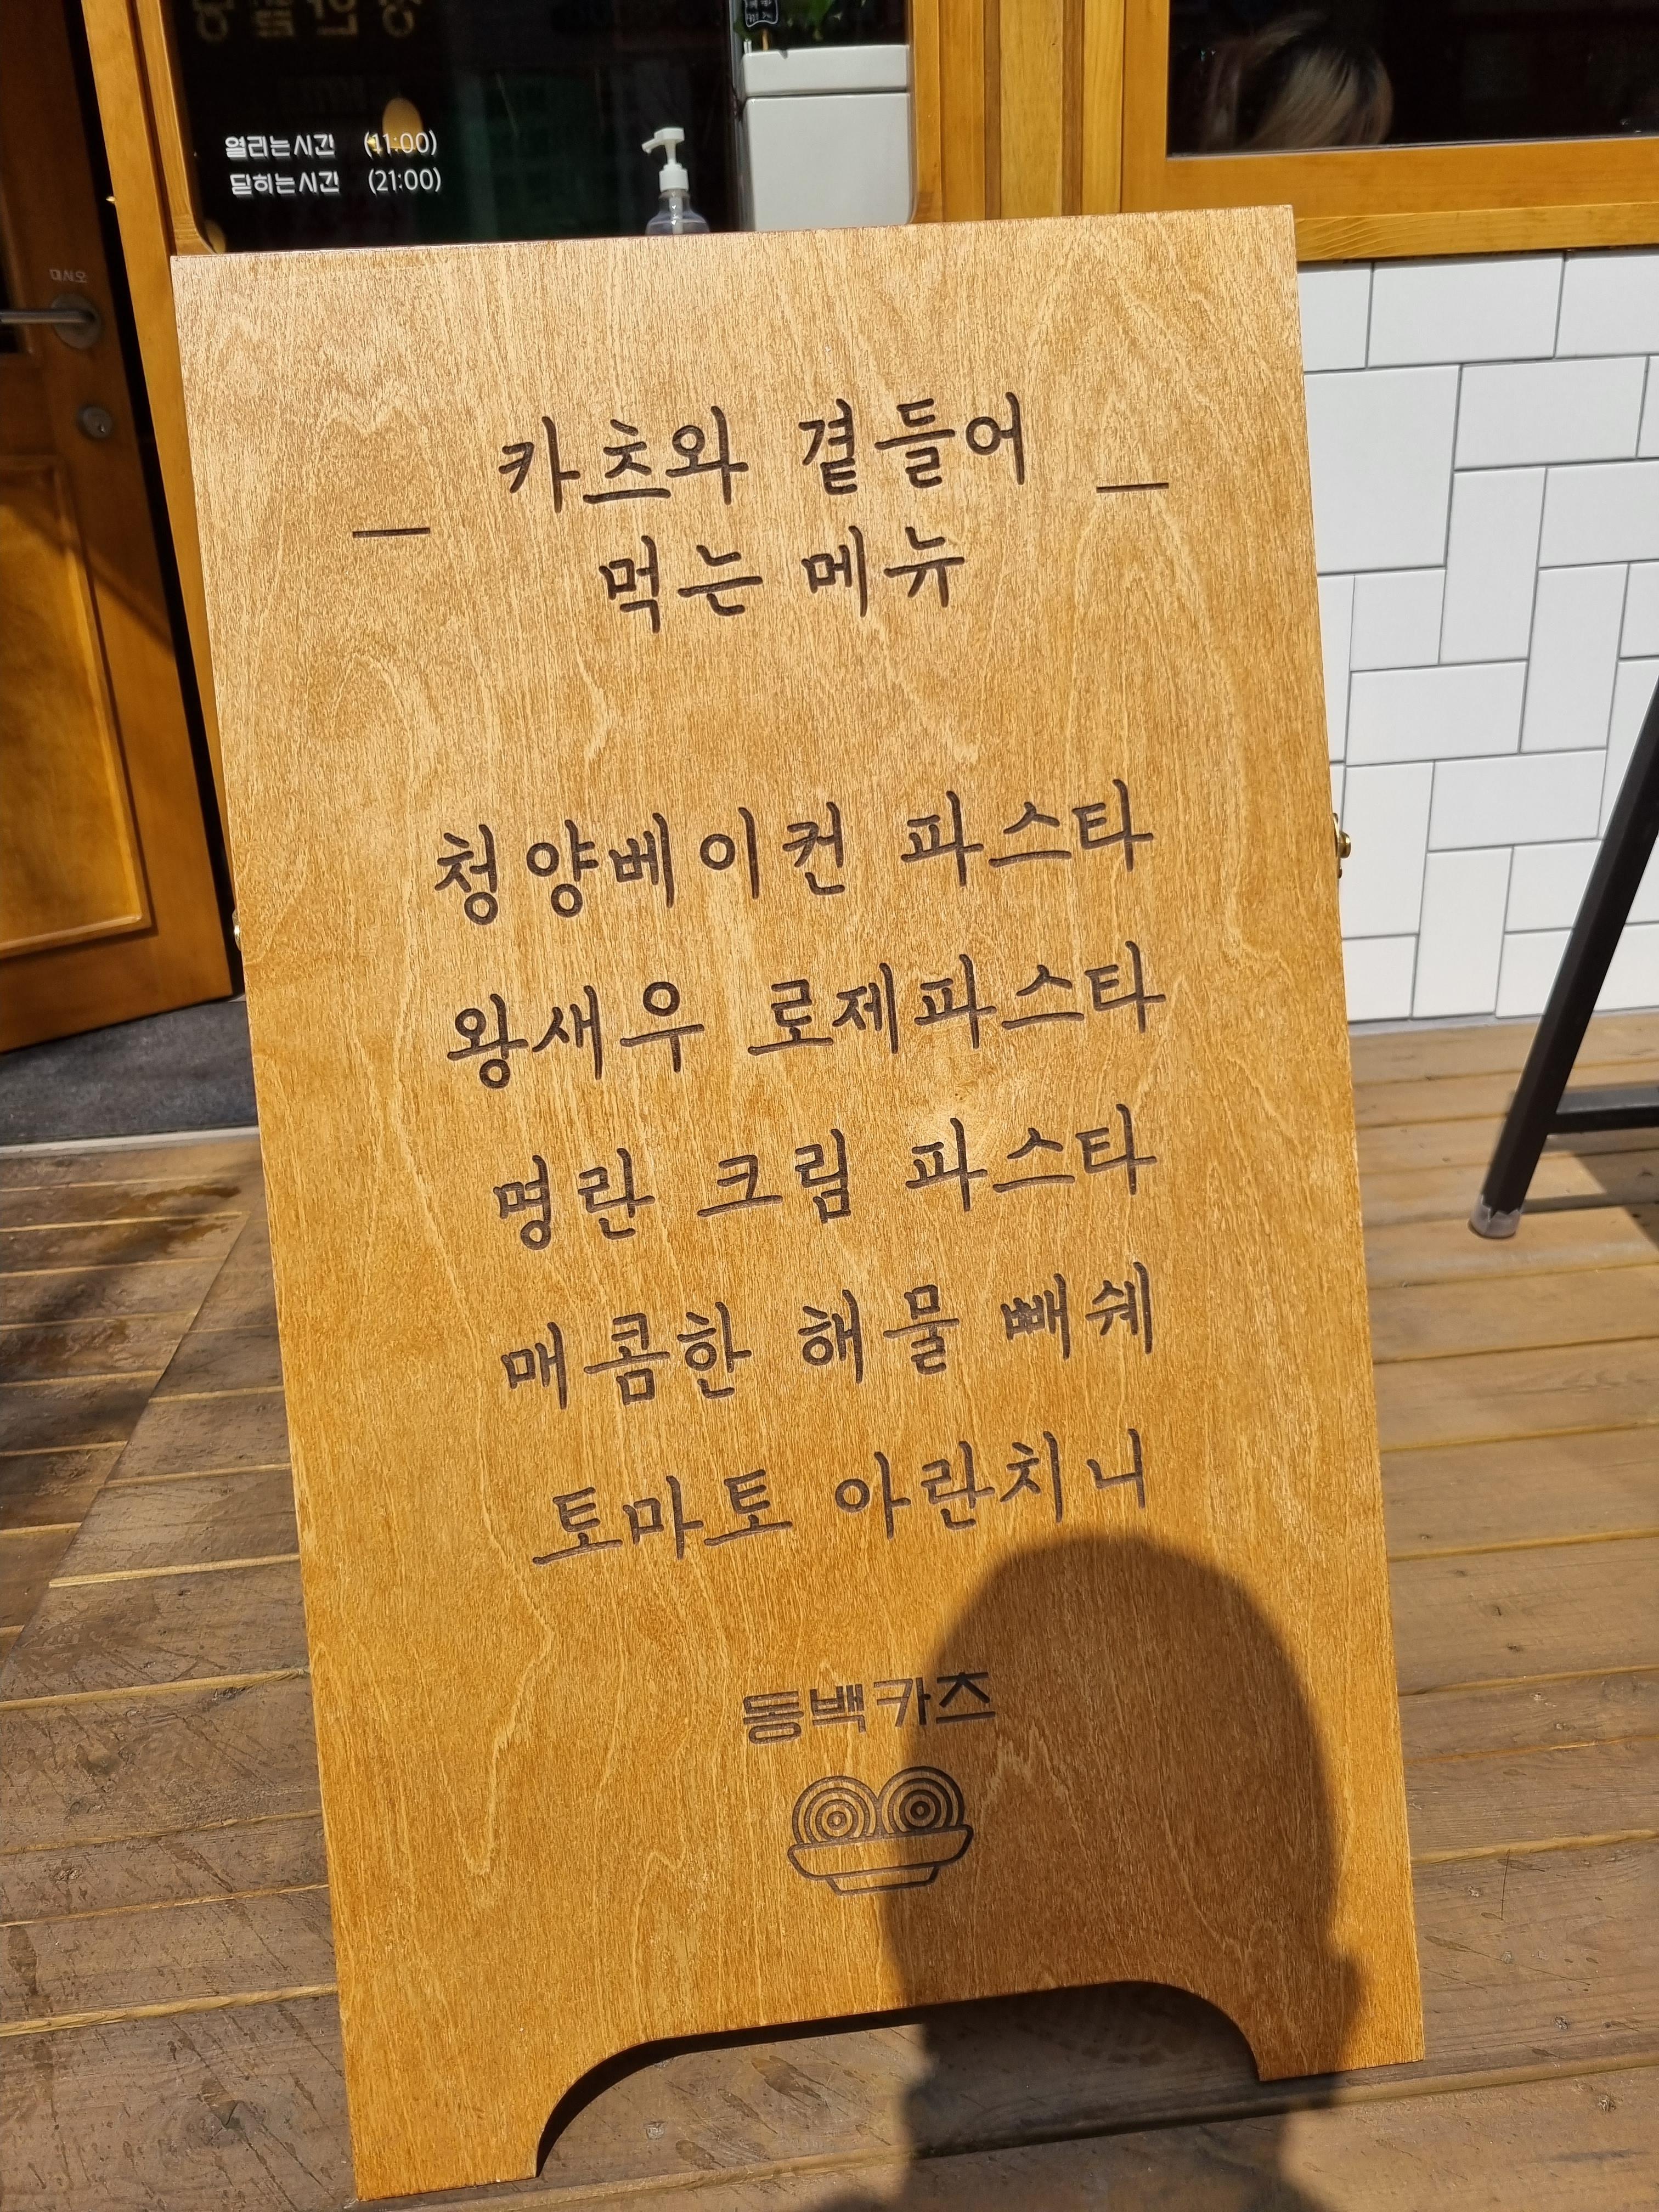 열리는시간 (11:00)
닫히는시간 (21:00)
미시오
카츠와 곁들어
먹는 메뉴
청양베이컨 파스타
왕새우 로제파스타
명란 크림 파스타
매콤한 해물 빼쉐
토마토 아란치니
동백카츠